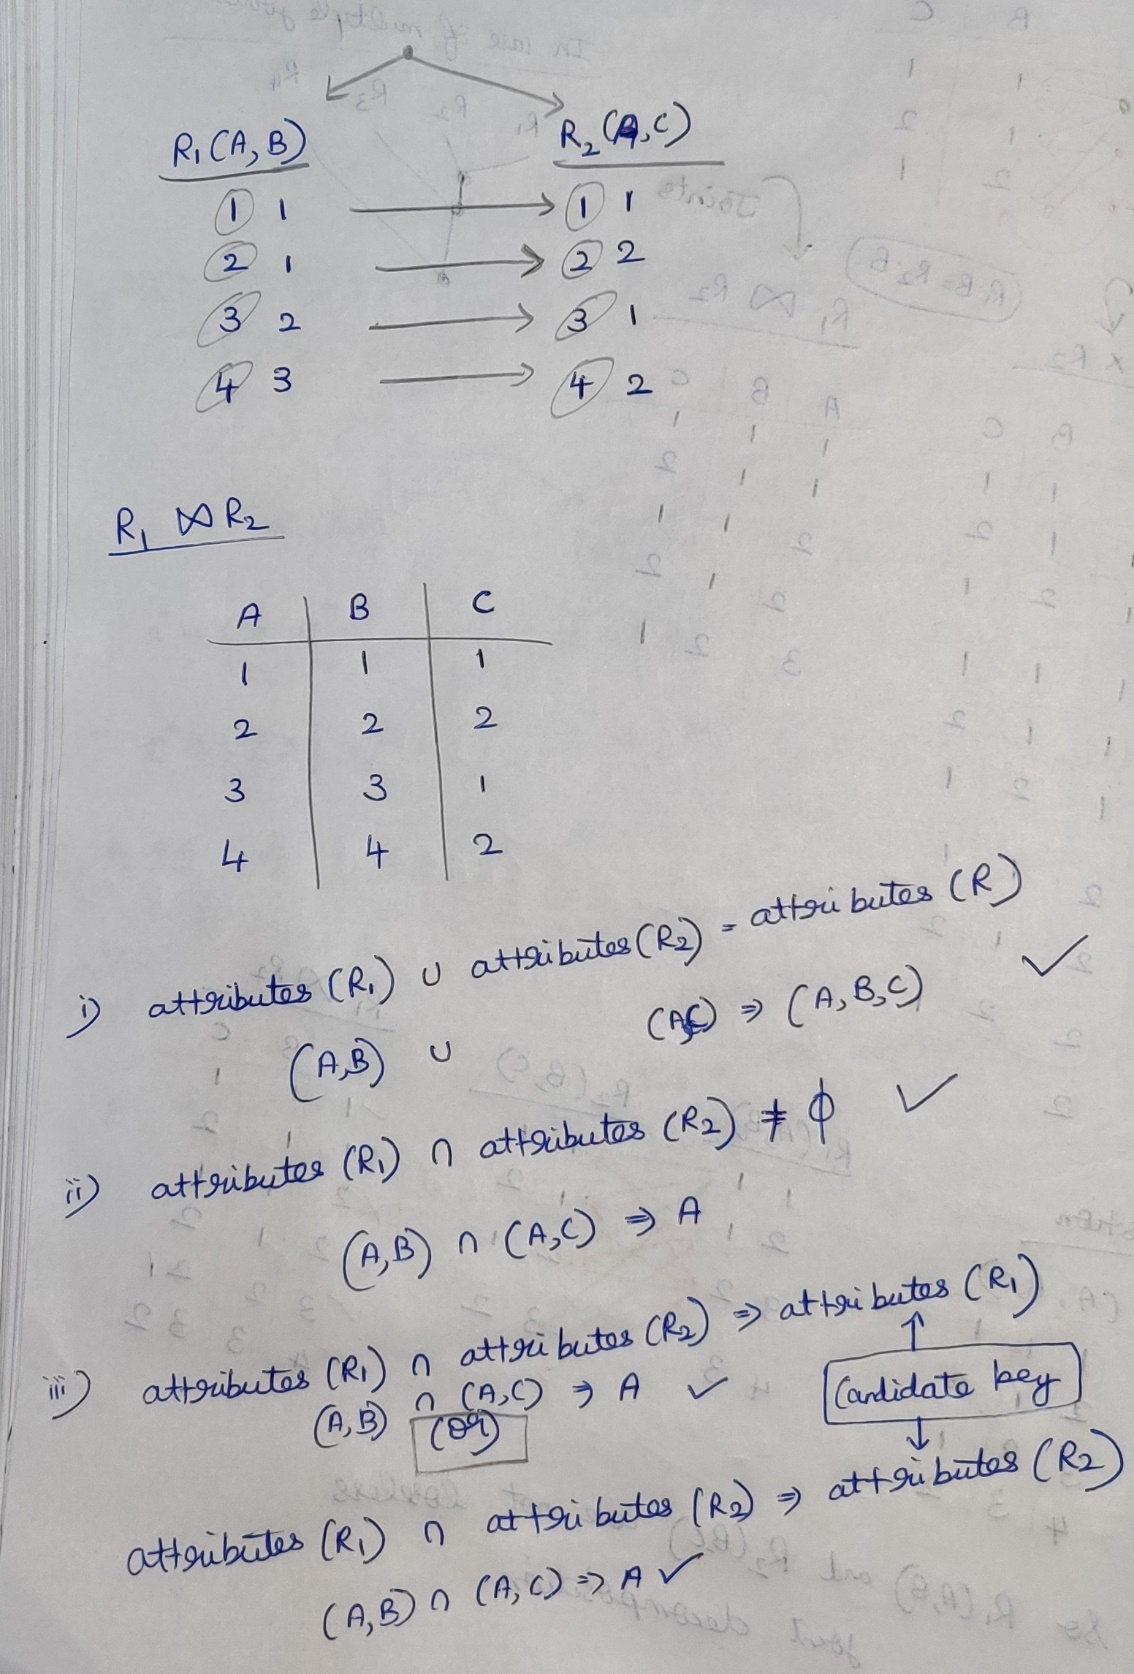 R₁(A, B) R₂(A,C)
1 1 1 1
2 1 2 2
3 2 3 1
4 3 4 2
R₁ ⋈ R₂
A B C
1 1 1
2 2 2
3 3 1
4 4 2
i) attributes (R₁) ∪ attributes (R₂) = attributes (R)
(A,B) ∪ (A,C) ⇒ (A, B, C) ✓
ii) attributes (R₁) ∩ attributes (R₂) ≠ ϕ ✓
(A,B) ∩ (A,C) ⇒ A
iii) attributes (R₁) ∩ attributes (R₂) ⇒ attributes (R₁)
(A,B) ∩ (A,C) ⇒ A ✓
(or)
Candidate key
attributes (R₁) ∩ attributes (R₂) ⇒ attributes (R₂)
(A,B) ∩ (A,C) ⇒ A ✓